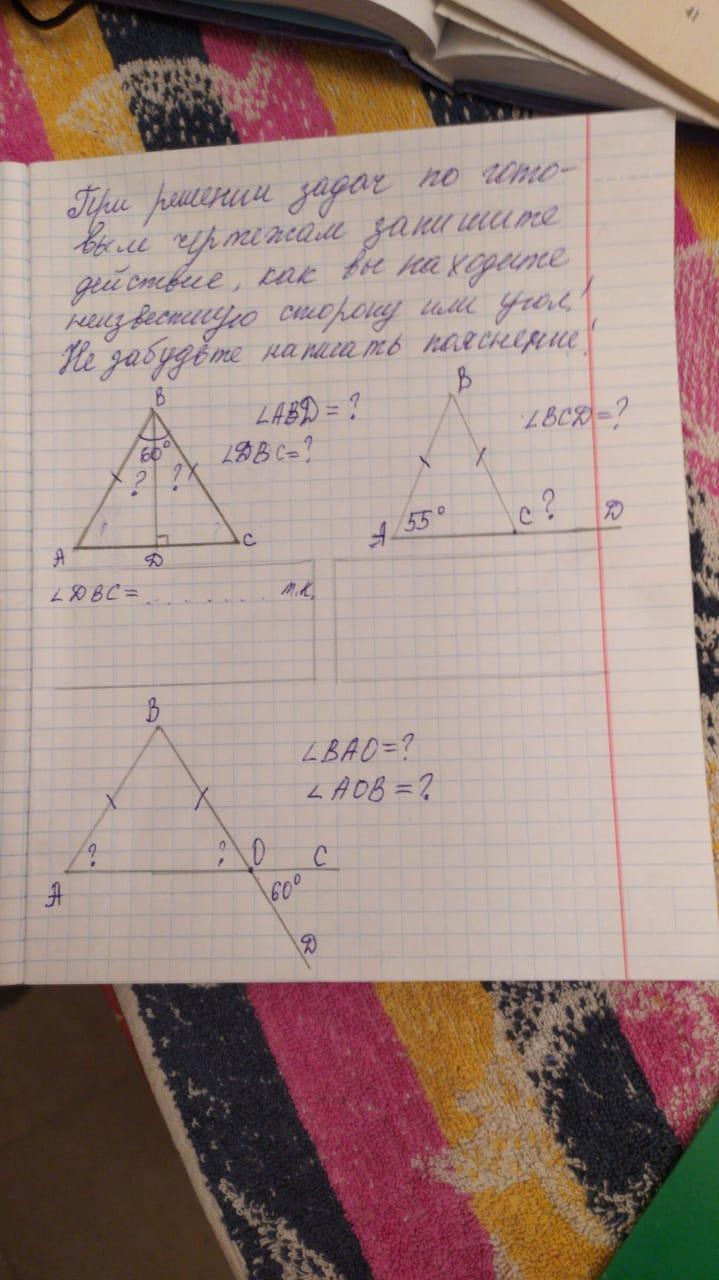 При решении задач по гото-
вым чертежам запишите
действие, как вы находите
неизвестную сторону или угол!
Не забудьте написать пояснение!
B
60°
? ?
A D C
∠ABD = ?
∠DBC = ?
B
55°
A C ? D
∠BCD = ?
∠DBC = . . . . . . . т.к.
B
? ? O C
A 60°
D
∠BAO = ?
∠AOB = ?
41